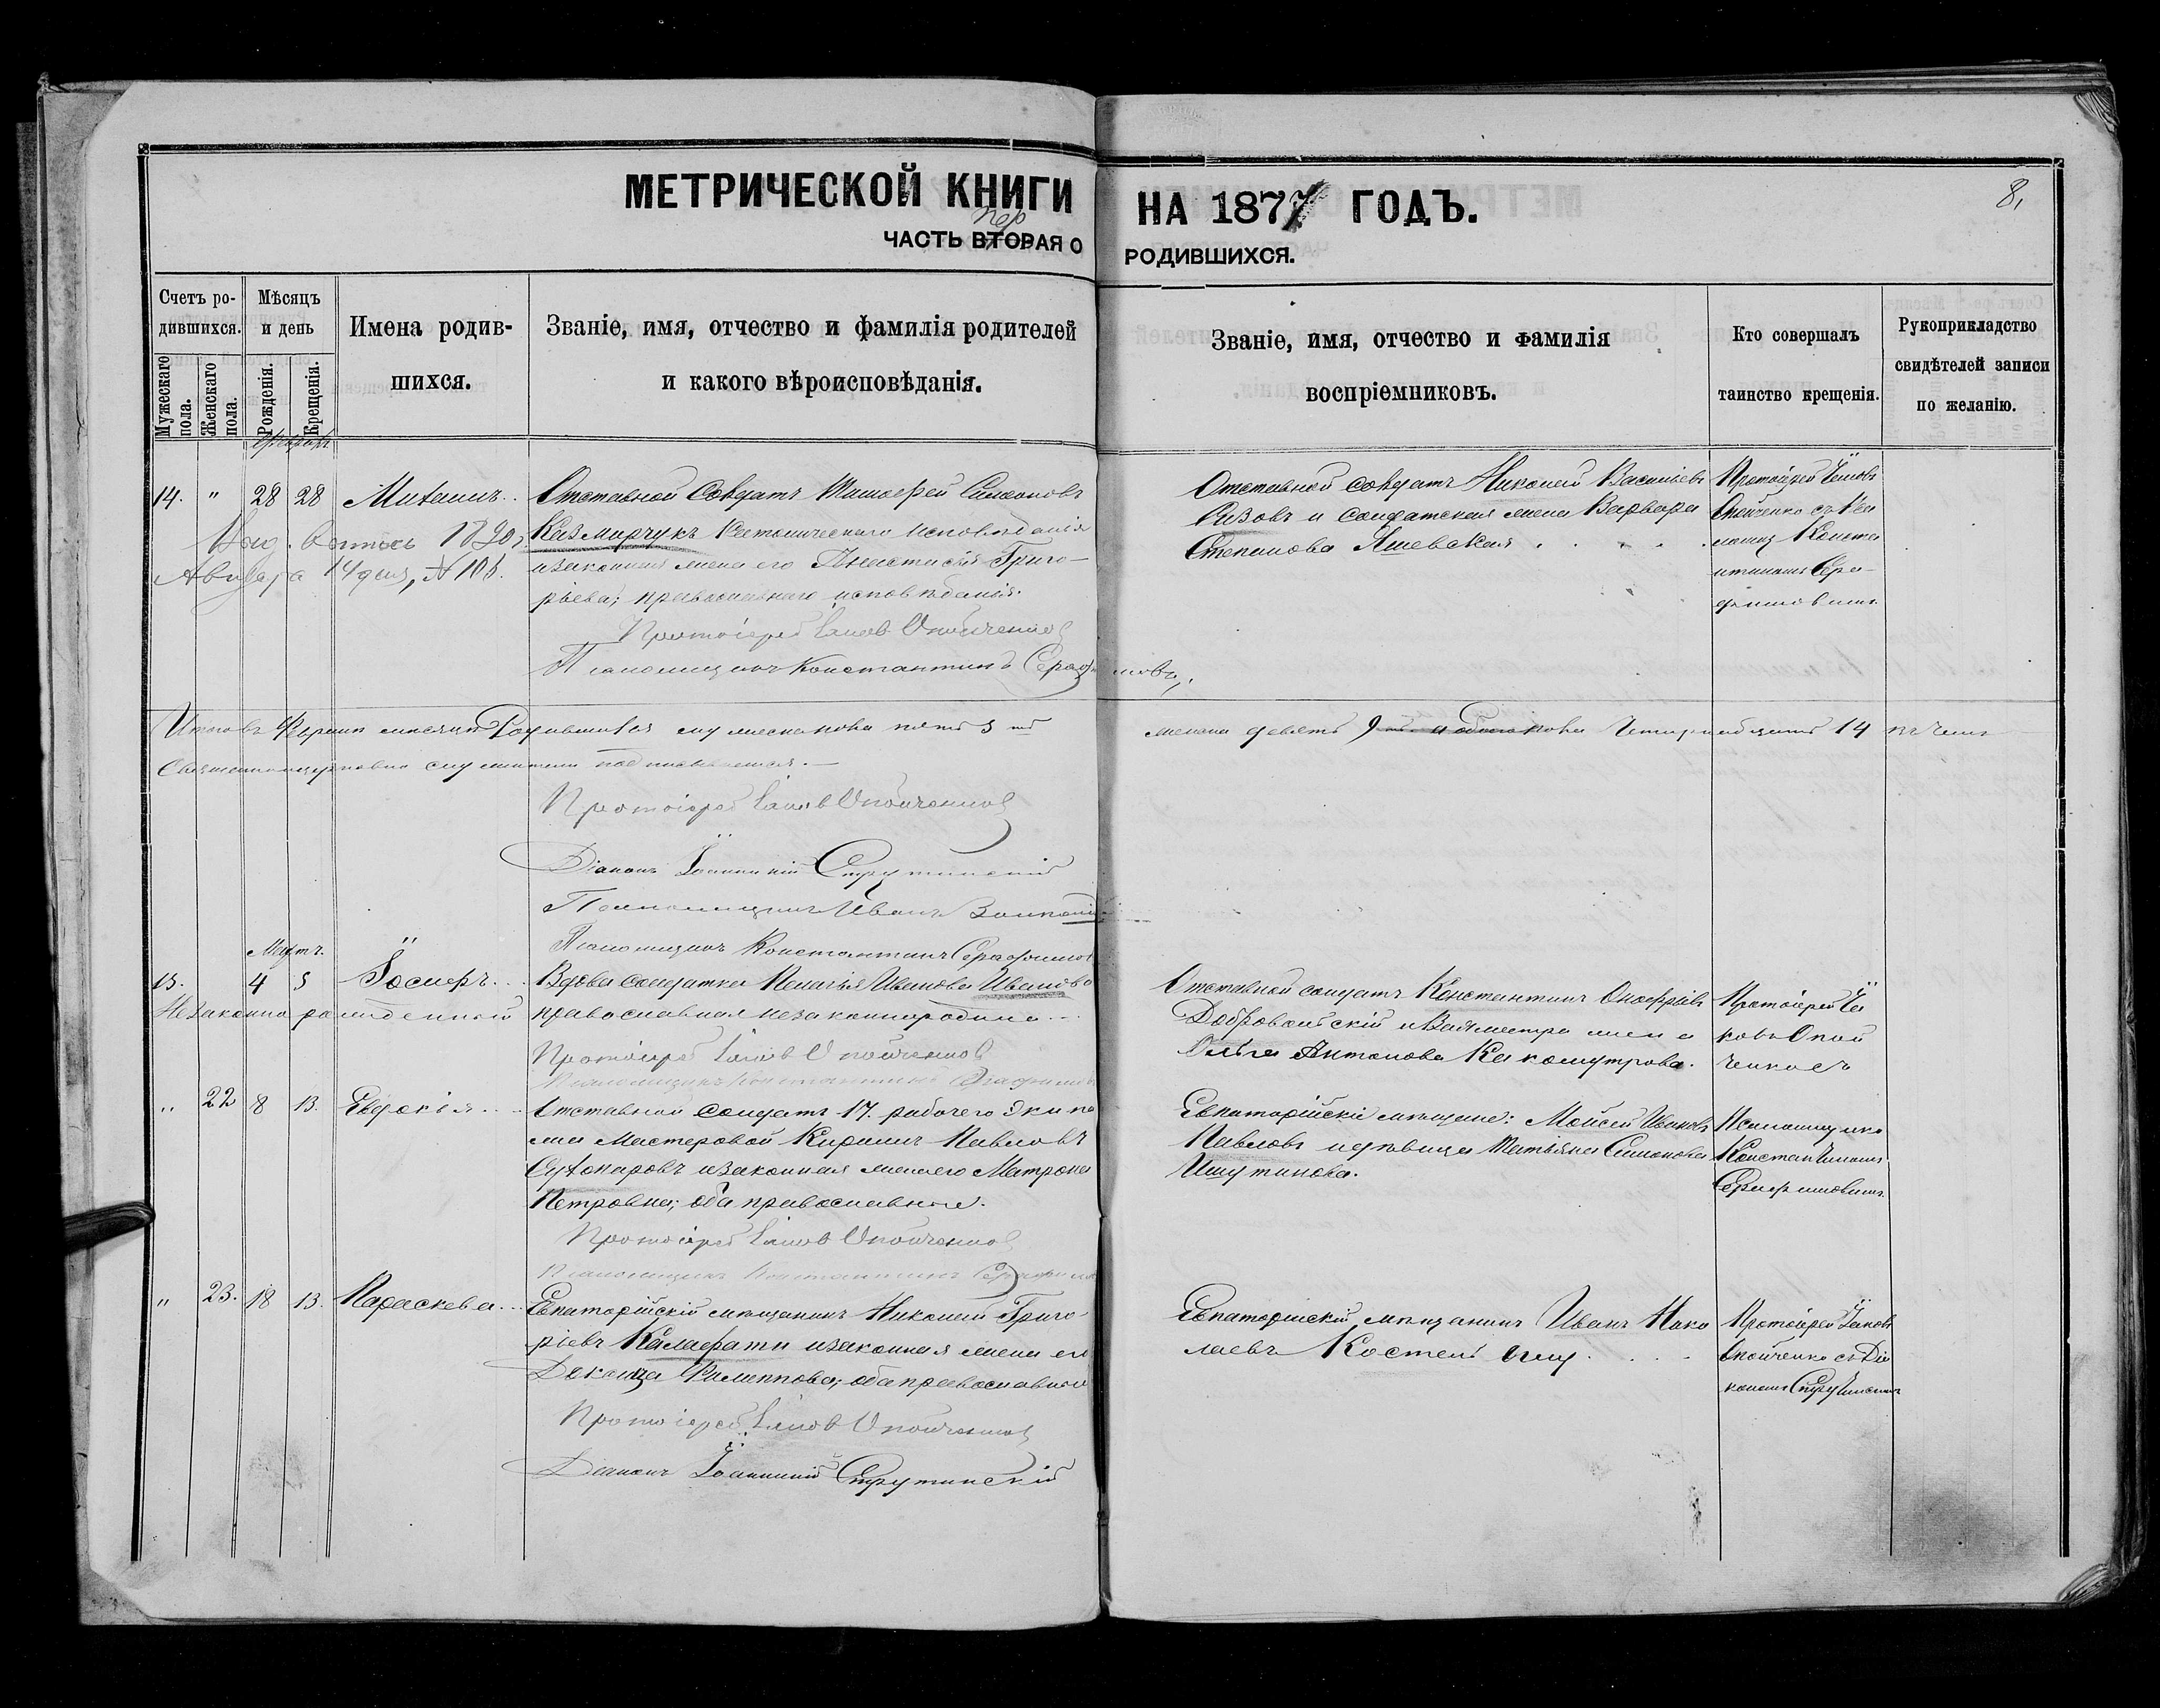 МЕТРИЧЕСКОЙ КНИГИ НА 1877 ГОДЪ.
8,
пер
ЧАСТЬ ВТОРАЯ О РОДИВШИХСЯ.
Счетъ ро-
дившихся.
Мужескаго пола.
Женскаго пола.
Мѣсяцъ
и день
Рожденія.
Крещенія.
Имена родив-
шихся.
Званіе, имя, отчество и фамилія родителей
и какого вѣроисповѣданія.
Званіе, имя, отчество и фамилія
воспріемниковъ.
Кто совершалъ
таинство крещенія.
Рукоприкладство
свидѣтелей записи
по желанію.
14. " 28 28 Михаилъ..
Отставной Солдатъ Тимофей Симоновъ
Казмирчукъ Католическаго исповѣданія
изаконная жена его Анастасія Григо-
рьева; православнаго исповѣданія.
Протоіерей Іаковъ Опойченко
Псаломщикъ Константинъ Серафимовъ,
Отставной солдатъ Николай Васильевъ
Сизовъ и солдатская жена Варвара
Степанова
Протоіерей Іаковъ
Опойченко съ Пса
ломщ Конста
нтиномъ Сера-
фимовымъ
1890
Августа 14 дня, №
Итого въ Февралѣ мѣсяцѣ Родившихся мужеска пола пять 5 ть
женска девять 9 ть а обоего пола Четырнадцать 14 въ чемъ
Священноцерковно служители подписываемся.
Протоіерей Іаковъ Опойченко
Діаконъ Іоанникій Струтинскій
Псаломщикъ Иванъ
Псаломщикъ Константинъ Серафимовъ
Мартъ.
15. 4 5 Іосифъ...
Незаконно рожденный
Вдова солдатка Пелагія Иванова Иванова
православная незаконнородила...
Протоіерей Іаковъ Опойченко
Псаломщикъ Константинъ Серафимовъ
Отставной солдатъ Константинъ Онофріевъ
Добровольскій и Вахмистра жена
Ольга Антонова
Протоіерей Іа
ковъ Опой
ченко съ
" 22 8 13. Евдокія...
Отставной Солдатъ 17. рабочего Экипа
жа Мастеровой Кирилъ Павловъ
Сухопаровъ изаконная жена его Матрона
Петровна; оба православные.
Протоіерей Іаковъ Опойченко
Псаломщикъ Константинъ Серафимовъ
Евпаторійскіе мѣщане: Моисей Ивановъ
Павловъ идѣвица Татьяна Симонова
Ишутинова.
Псаломщико
Константиномъ
Серафимовымъ
" 23. 18 13. Параскева...
Евпаторійскій мѣщанинъ Николай Григо-
ріевъ Калафати изаконная жена его
Домница Филиппова; оба православные
Протоіерей Іаковъ Опойченко
Діаконъ Іоанникій Струтинскій
Евпаторійскій мѣщанинъ Иванъ Нико
лаевъ
Протоіерей Іаковъ
Опойченко съ Діа
кономъ Струтинскимъ